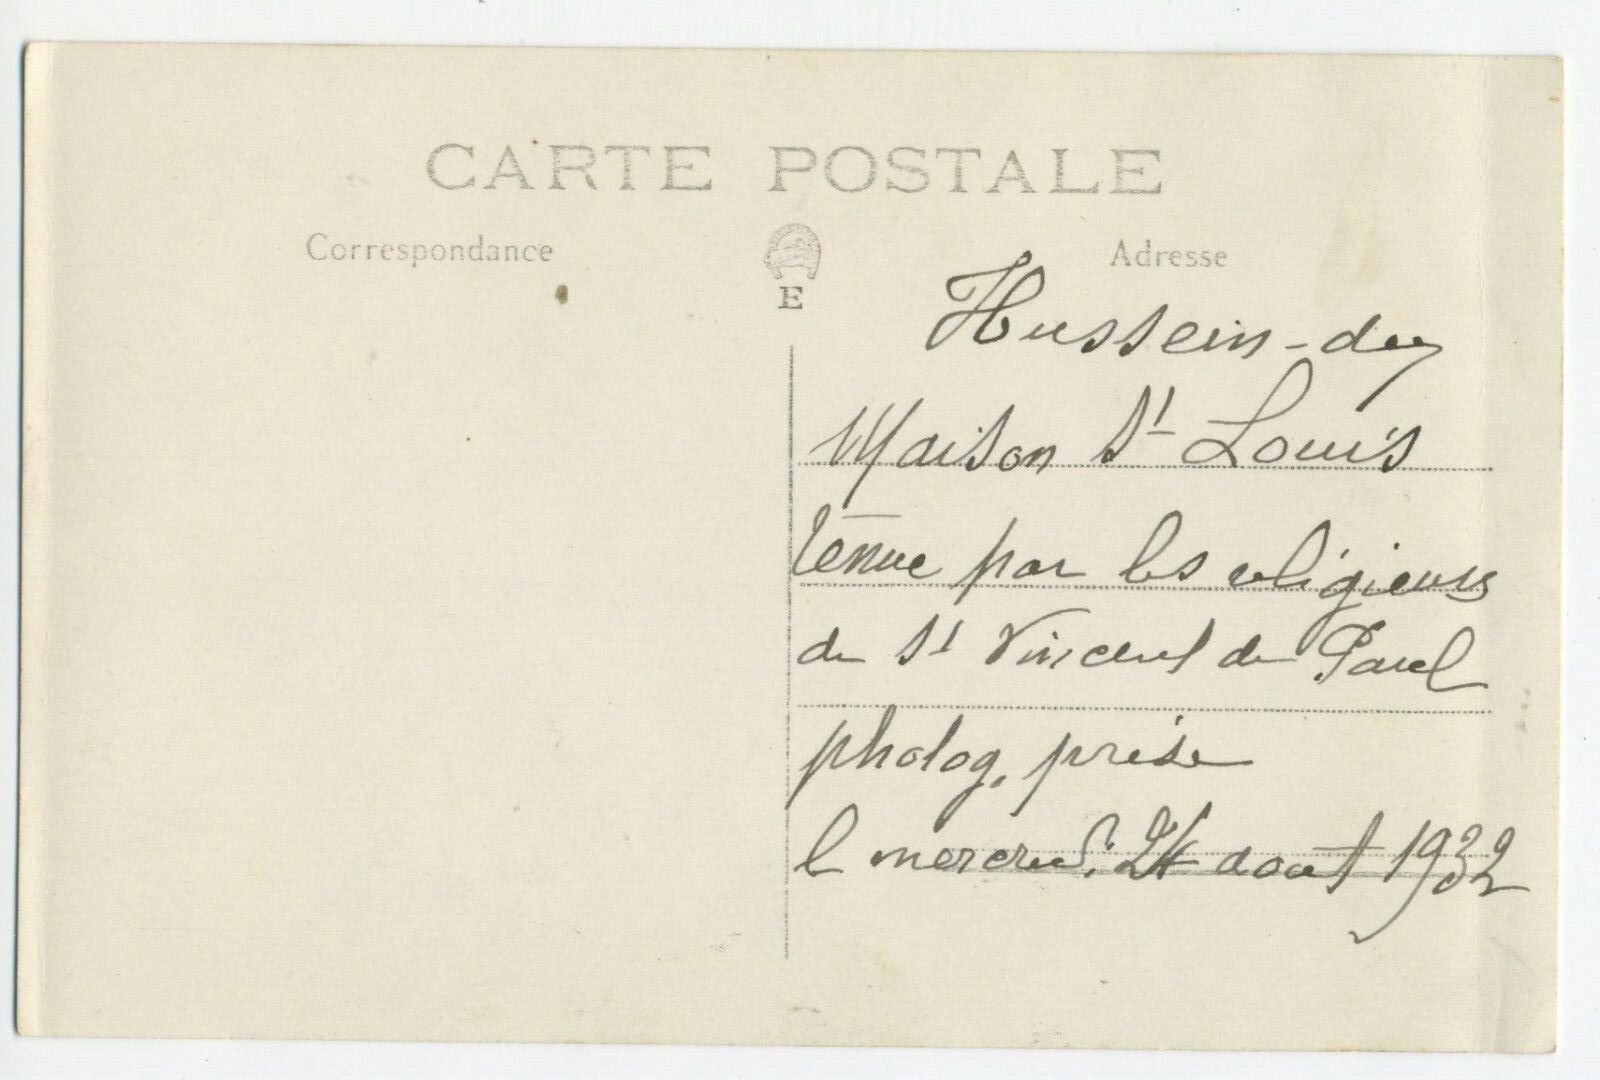 CARTE POSTALE
Correspondance
Adresse
E
Hussein-dey
Maison St Louis
tenue par les religieuses
de St Vincent de Paul
photog. prise
le mercredi 24 août 1932